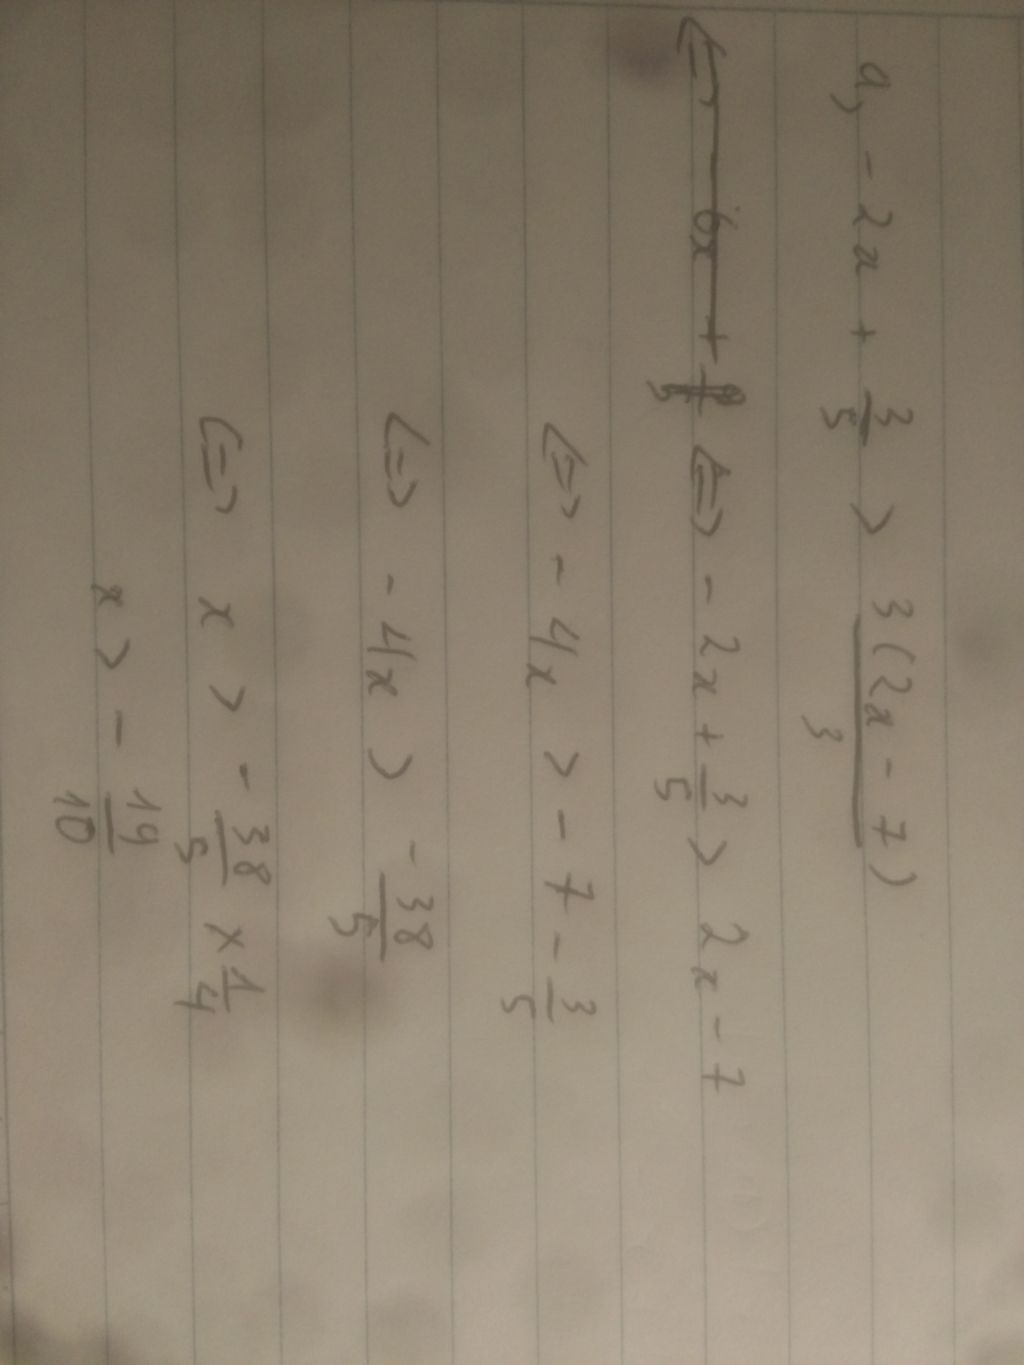 a, - 2x + 3/5 > 3(2x - 7)/3
<=> - 2x + 3/5 > 2x - 7
<=> - 4x > - 7 - 3/5
<=> - 4x > - 38/5
<=> x > - 38/5 x 1/4
x > - 19/10